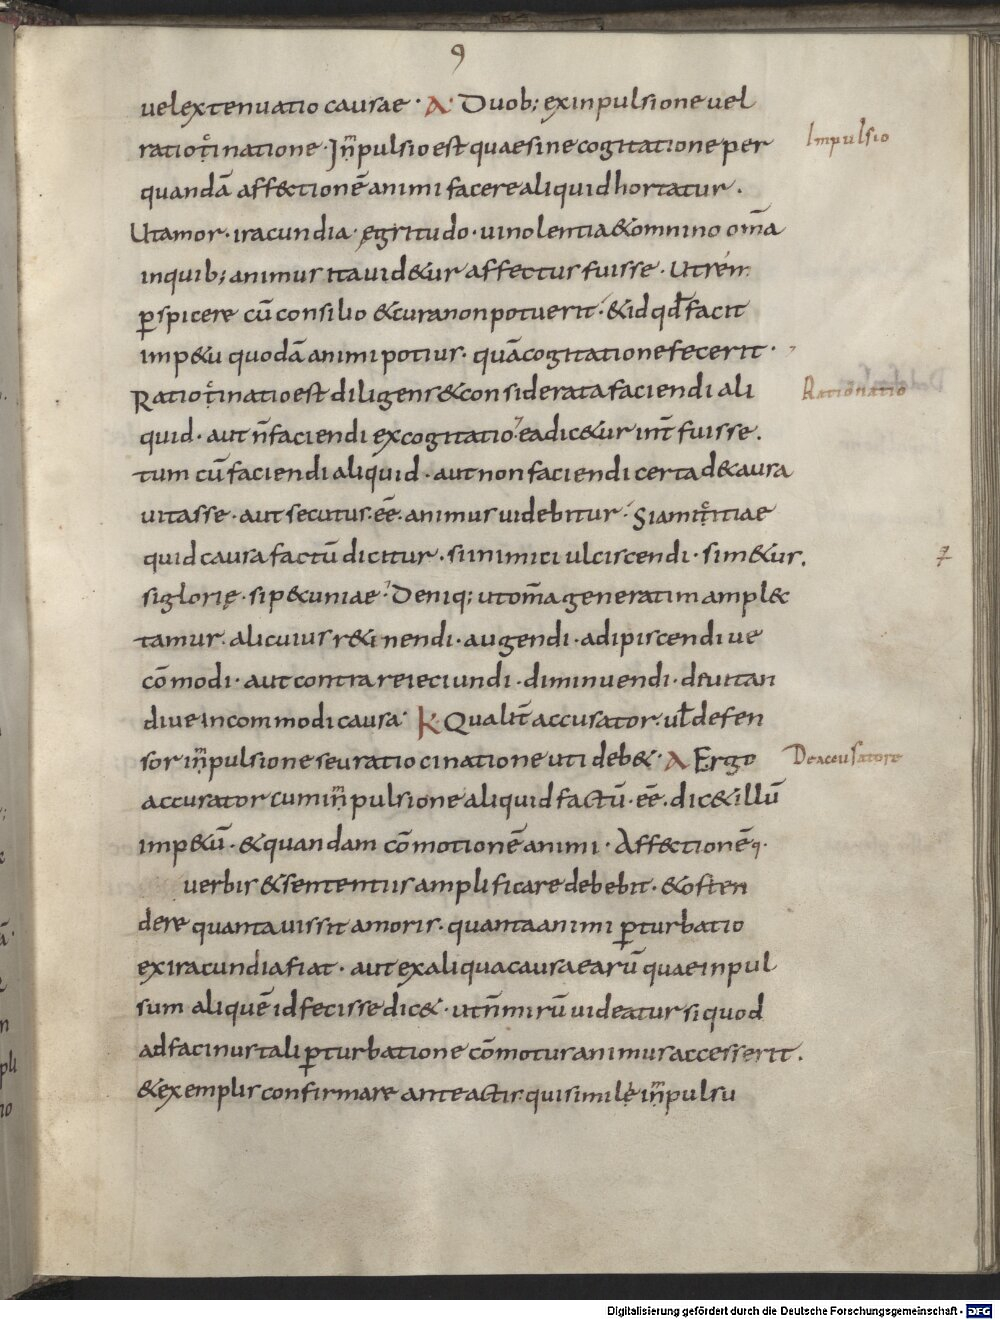 9
uel extenuatio causae · A · Duob; ex inpulsione uel
ratiot̊inatione · Jnpulsio est quae sine cogitatione per
Impulsio
quandā aff&ctionē animi facere aliquid hortatur .
Ut amor · iracundia · ęgritudo · uinolentia & omnino om̄a
in quib; animus ita uid&ur affectus fuisse · Ut rem
ꝑspicere cū consilio & cura non potuerit · & id qđ facit
imp&u quodā animi potius · quā cogitatione fecerit ·
Ratiot̊inatio est diligens & considerata faciendi ali
Ratiotinatio
quid · aut n̄ faciendi excogitatio · ea dic&ur int̄ fuisse .
tum cū faciendi aliquid · aut non faciendi certa de causa
uitasse · aut secutus · eē · animus uidebitur · Si amicitiae
quid causa factū dicitur · si inimici ulciscendi · si m&us .
si glorię · si p&cuniae · Deniq; ut om̄a generatim ampl&c
tamur · alicuius r&inendi · augendi · adipiscendi ue
cōmodi · aut contra reieciundi · diminuendi · deuitan
diue incommodi causa · K · Qualit̄ accusator · uł defen
sor inpulsione seu ratiocinatione uti deb& · A Ergo
De accusatore
accusator cum inpulsione aliquid factū · eē . dic& illū
imp&ū · & quandam cōmotionē animi · Aff&ctionēq·
uerbis & sententiis amplificare debebit · & osten
dere quanta uis sit amoris · quanta animi ꝑturbatio
ex iracundia fiat · aut ex aliqua causa earū quae inpul
sum aliquē id fecisse dic& · ut n̄ mirū uideatur si quod
ad facinus tali ꝑturbatione cōmotus animus accesserit .
& exemplis confirmare ante actis · qui simile inpulsu
Digitalisierung gefördert durch die Deutsche Forschungsgemeinschaft - DFG